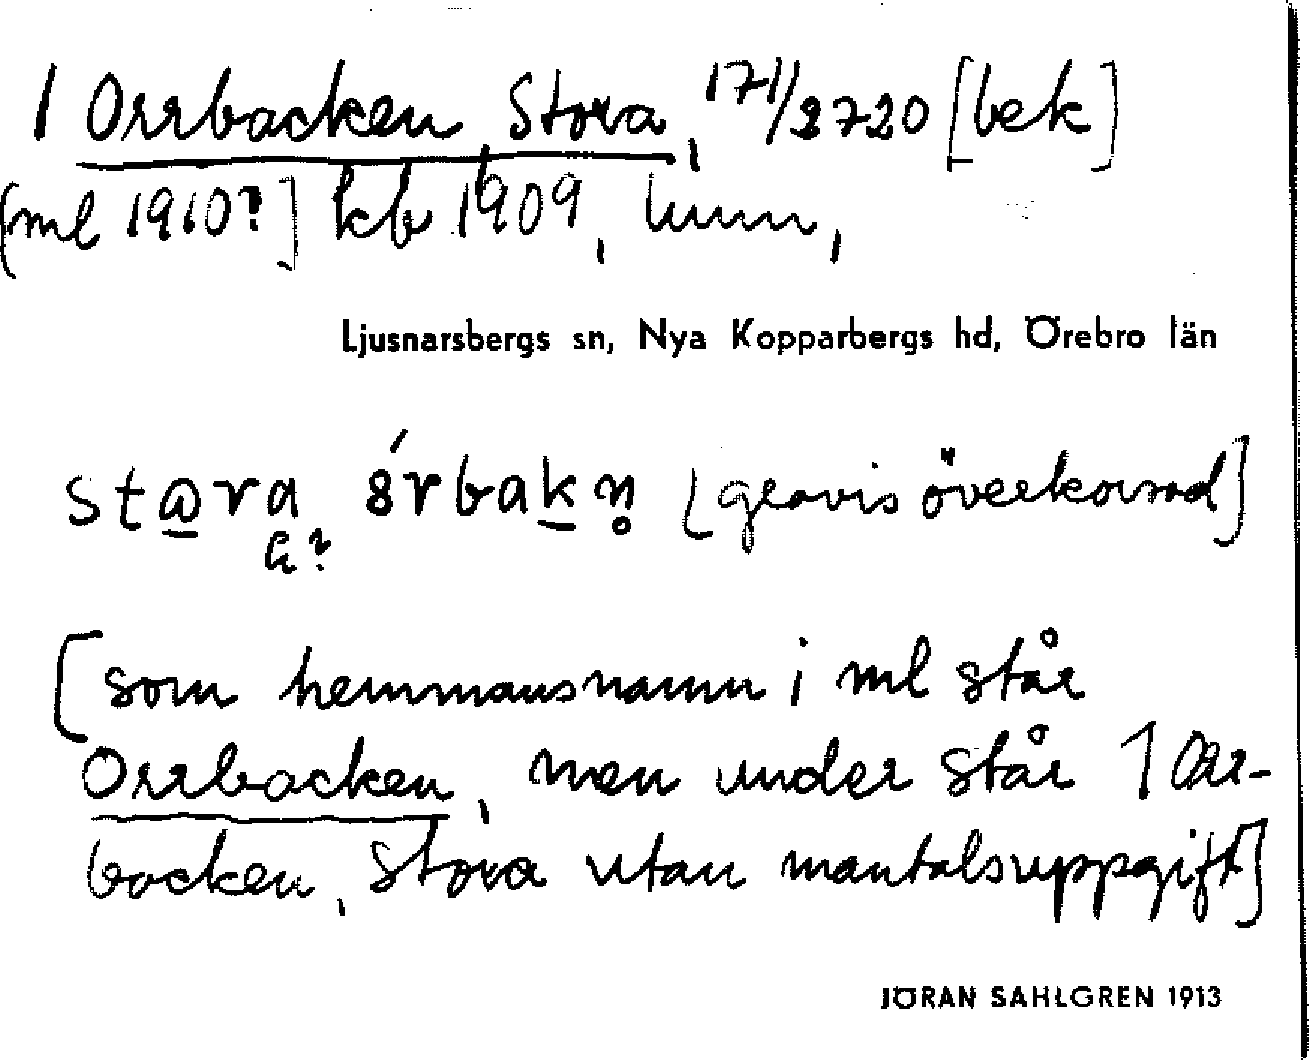 1 Orrbacken, Stora, 171/2720 [bek]
[ml 1910?] kb 1909, hmn,
Ljusnarsbergs sn, Nya Kopparbergs hd, Örebro län
bakn̥ [gravis överkorsad]
[som hemmansnamn i ml står
Orrbacken, men under står 1 Orr-
backen, Stora utan mantalsuppgift]
JÖRAN SAHLGREN 1913